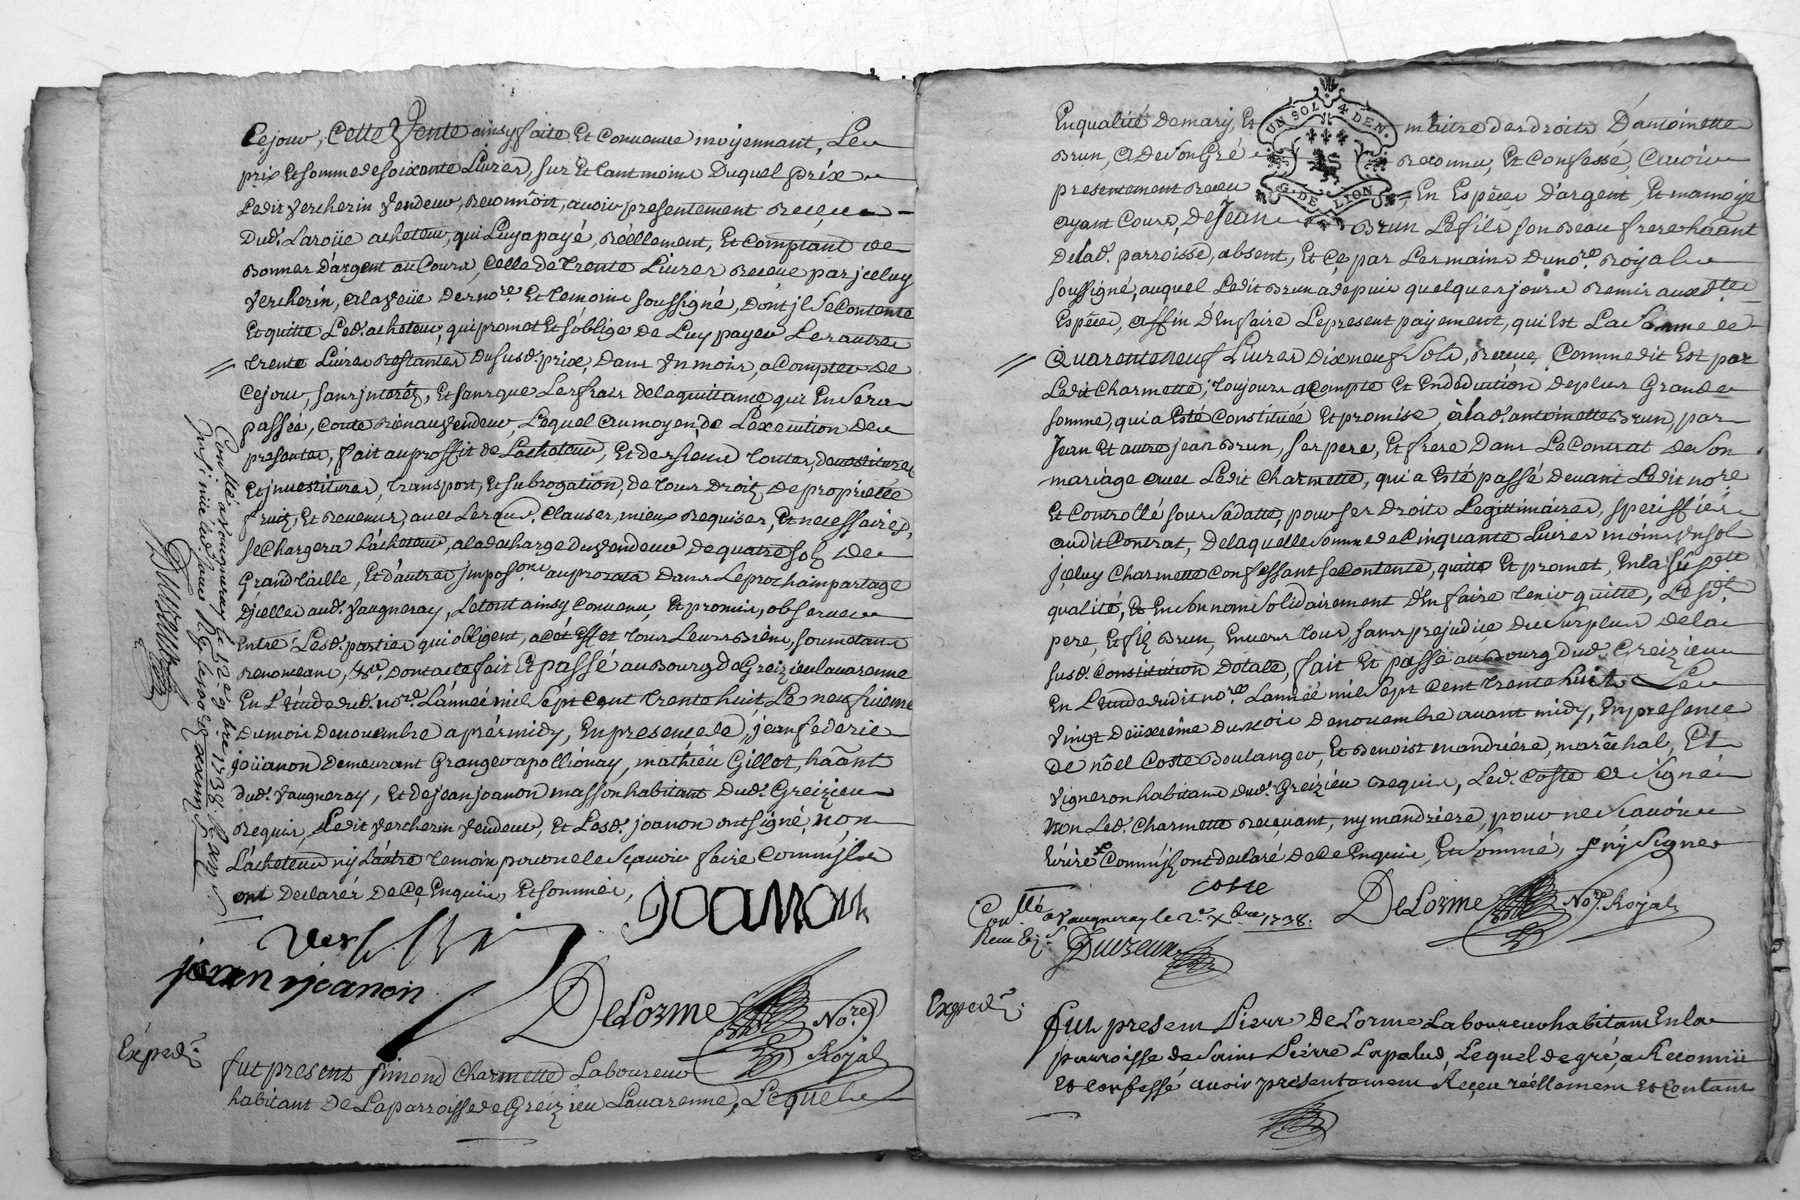 Cejour, Cette Vente ainsy faite Et Convenue moyennant, Le
prix Et somme de soixante Livres, sur Et tant moins Duquel prix
Ledit Vercherin Vendeur, Reconnoit, avoir presentement Reçeu
Dud. Laroüe acheteur, qui Luy a payé, Réellement, Et Comptant de
Bonnes D'argent au Cours, Celle de Trente Livres Receue par jceluy
Vercherin, a la Veüe de no.re Et temoins soussigné, Dont jl Se Contente
Et quitte Led. acheteur, qui promet Et s'oblige de Luy payer Les autres
Trente Livres Restantes Du susd. prix, Dans Vn mois, a Compter de
Cejour, sans jnterêts, Et sans que Les frais de la quittance qui En Sera
passée, Coute Rien au Vendeur, Lequel au moyen de L'execution des
presentes, fait au proffit de L'acheteur, Et des siens Toutes, devestitures
Et jnvestitures, Transport, Et subrogation, de Tous Droits, de proprietée
fruits, Et Revenus, avec Les Clauses, mieux Requises, Et necessaires,
se Chargera L'acheteur, a la decharge du Vendeur de quatre sols de
Grand Taille, Et d'autres jmpos.ons au prorata Dans Le prochain partage
D'jcelles aud. Vaugneray, Le tout ainsy Convenu, Et promis, observer
Entre Lesd. parties qui obligent, a Cet Effet Tous Leurs Biens, soumettant
Renonceant, &c. Dont acte fait Et passé au Bourg de Greizieu Lavarenne
En L'Etude dud. no.re L'année mil Sept Cent Trente huit Le neufvieme
Du mois de novembre apres midy, En presence de, jean federic
joüanon Demeurant Granger a pollionay, mathieu Gillot, haânt
Dud. Vaugneray, Et de jean joanon masson habitant Dud. Greizieu
Requis, Ledit Vercherin Vendeur, Et Lesd. joanon ont signé, non
L'acheteur ny L'autre Temoin pour ne le Sçavoir faire Comm'jls
ont Declarés De Ce Enquis, Et sommés,
joanon
Verscherin
jean joanon
DeLorme No.re Royal
Expedi.
Con.llé a Vaugneray le 12e 9.bre 1738. Reçu
Duvreux
fut present Simond Charmette Laboureur
habitant De Laparroisse de Greizieu Lavarenne, Lequel
UN SOL 4 DEN.
G. DE LION
En qualité De mary, Et maitre des droits D'antoinette
Brun, a de Son Gré Reconnu, Et Confessé, avoir
presentement Receu En Especes D'argent, Et monnoye
ayant Cours, de Jean Brun Le fils son Beau frere haânt
De lad. parroisse, absent, Et Ce par Les mains Du no.re Royal
soussigné, auquel Ledit Brun a depuis quelques jours Remis auxd.tes
Especes, affin d'En faire Le present payement, qui Est La Somme de
Quarente neuf Livres dix neuf Sols, Receue, Comme dit Est par
Ledit Charmette, Toujours a Compte Et En deduction de plus Grande
somme, qui a Esté Constituée Et promise, à lad. antoinette Brun, par
Jean Et autre jean Brun, Ses pere, Et frere Dans Le Contrat de Son
mariage avec Ledit Charmette, qui a Esté passé Devant Ledit no.re
Et Controllé sous Sa datte, pour ses droits Legittimaires, speciffiés
audit Contrat, De laquelle Somme de Cinquante Livres moins Un sol
Jceluy Charmette Confessant se Contente, quitte Et promet, En la sus.dtte
qualité, Et En son nom Solidairement D'En faire Tenir quitte, Lesd.
pere, Et fils Brun, Envers Tous, sans prejudice Du Surplus de la
susd. Constitution Dotale, fait Et passé au Bourg dud. Greizieu
En L'Etude dudit no.re L'année mil Sept Cent Trente huit Le
Vingt Deüxieme Du Mois De novembre avant midy, En presence
De nôel Coste Boulanger, Et Benoist mandriére, marêchal, Et
Vigneron habitans dud. Greizieu Requis, Led. Coste a Signé
Non Led. Charmette Recevant, ny mandriere, pour ne Sçavoir
Ecrire Comm'jls ont declaré De Ce Enquis, Et Sommé,
coste
DeLorme No.re Royal
Con.llé a Vaugneray le 2.e X.bre 1738.
Duvreux
Expedi.
fut present Pierre DeLorme Laboureur habitant En La
parroisse de Saint Pierre Lapalud, Lequel de gré, a Reconnu
Et confessé avoir présentement Reçeu réellement Et Contant